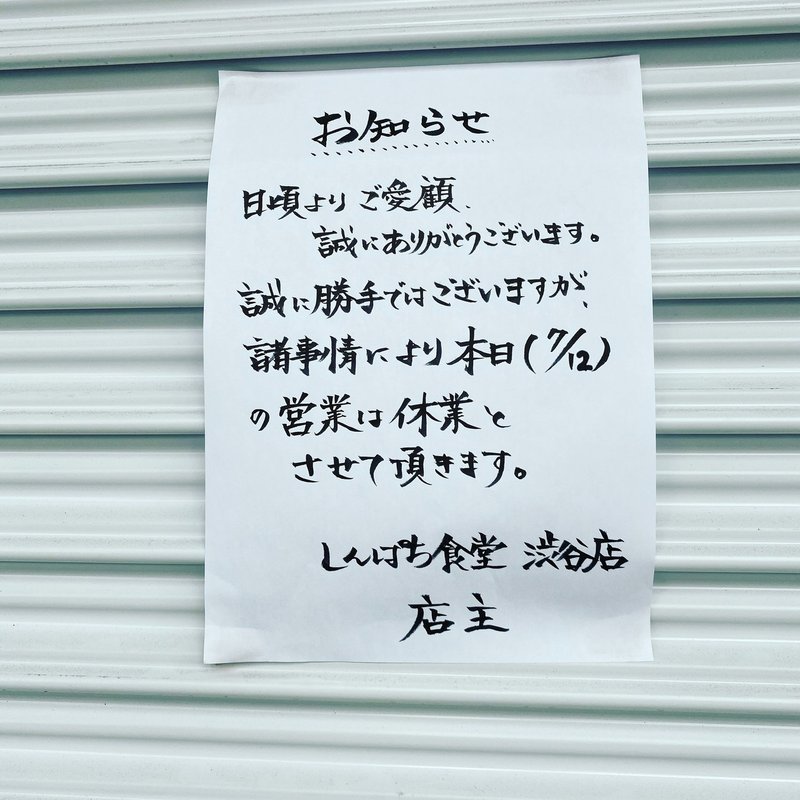 お知らせ
日頃よりご愛顧、
誠にありがとうございます。
誠に勝手ではございますが、
諸事情により本日(7/12)
の営業は休業と
させて頂きます。
しんぱち食堂 渋谷店
店主